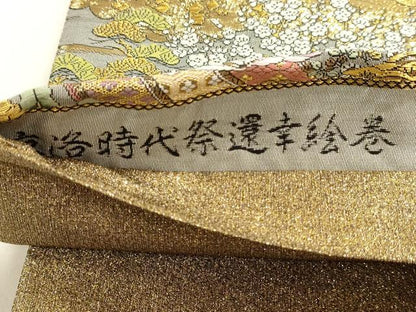 洛時代祭還幸絵巻